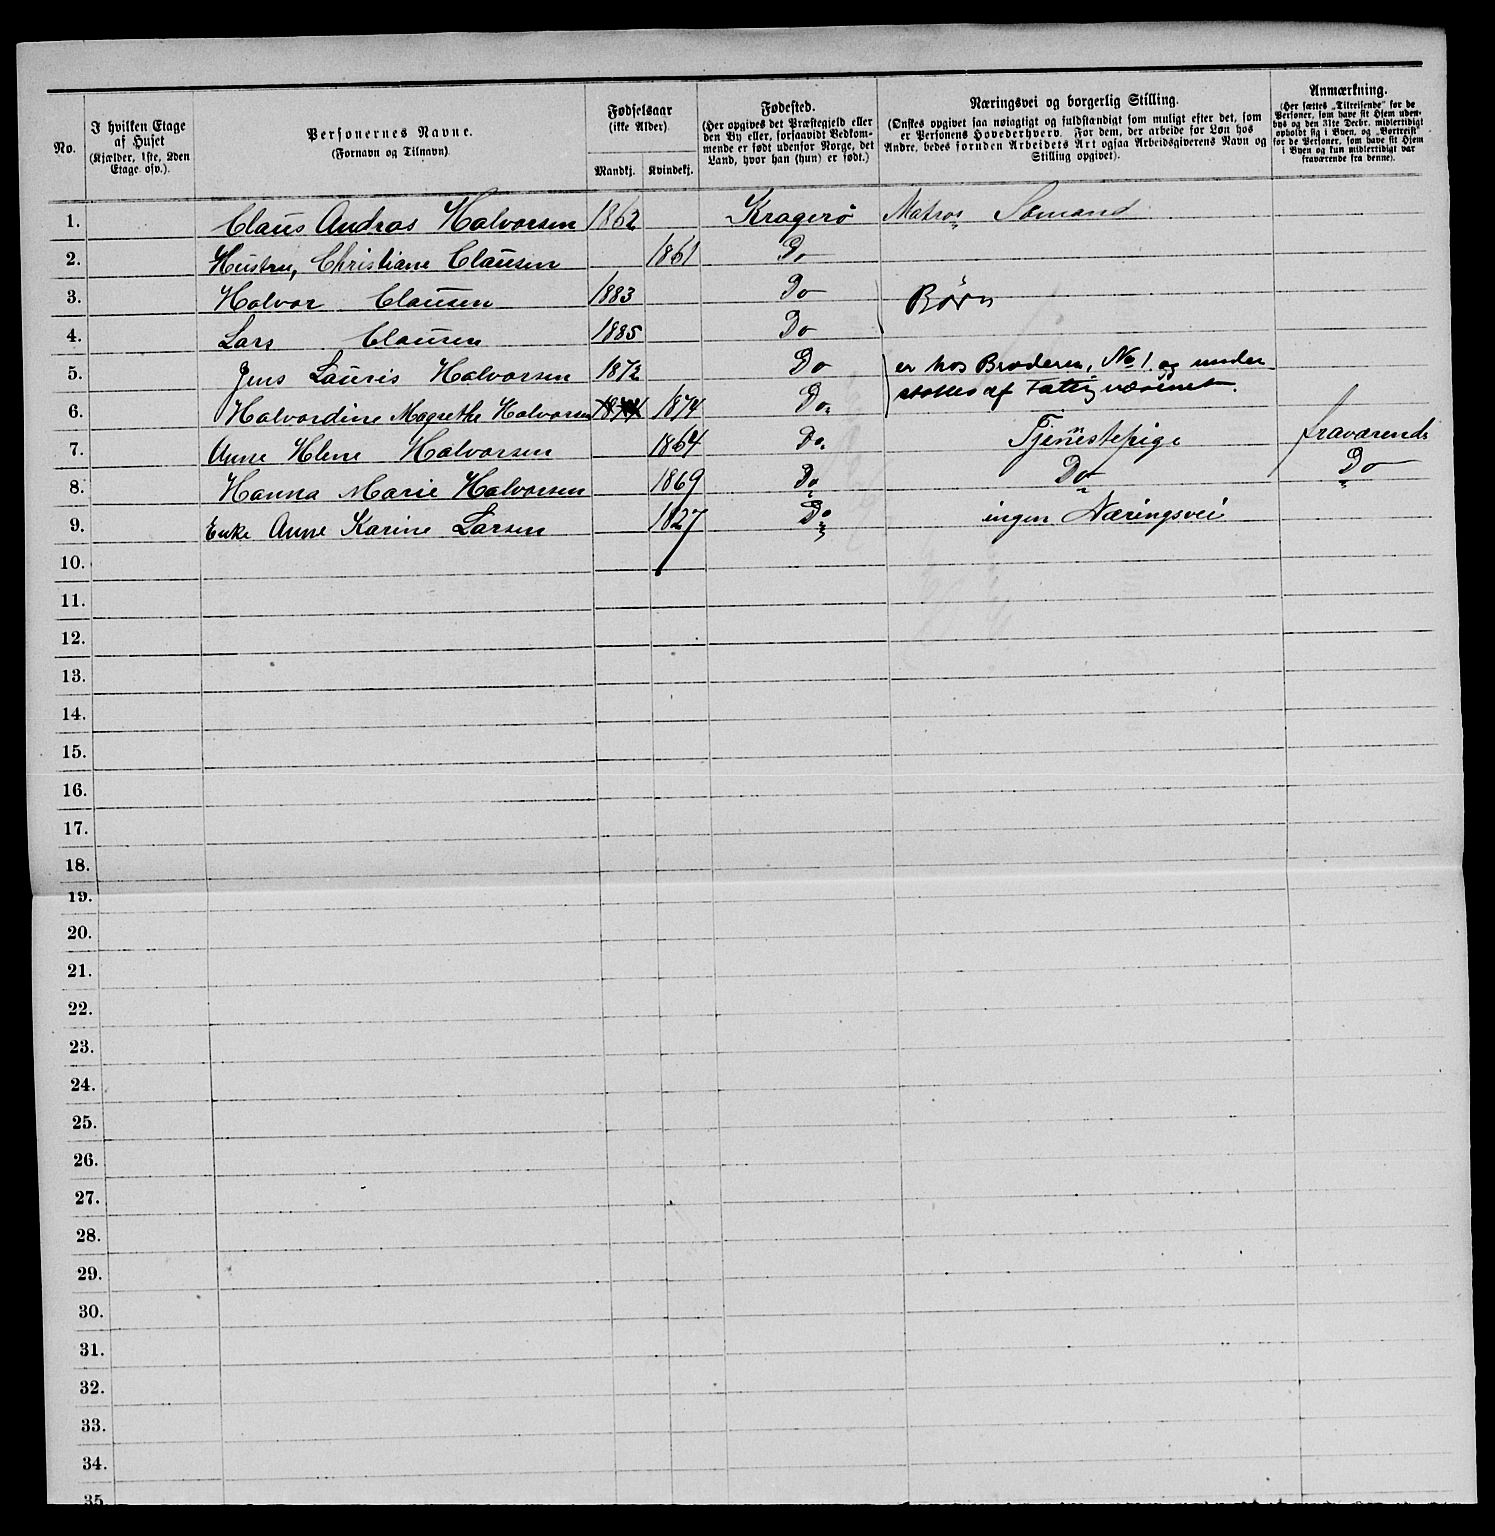 No.
I hvilken Etage
af Huset
(Kjælder, 1ste, 2den
Etage osv.).
Personernes Navne.
(Fornavn og Tilnavn).
Fødselsaar
(ikke Alder).
Mandkj. Kvindekj.
Fødested.
(Her opgives det Præstegjeld eller
den By eller, forsaavidt Vedkom-
mende er født udenfor Norge, det
Land, hvor han (hun) er født.)
Næringsvei og borgerlig Stilling.
(Ønskes opgivet saa nøiagtigt og fuldstændigt som muligt efter det, som
er Personens Hovederhverv. For dem, der arbeide for Løn hos
Andre, bedes foruden Arbeidets Art ogsaa Arbeidsgiverens Navn og
Stilling opgivet).
Anmærkning.
(Her sættes „Tilreisende" for de
Personer, som have sit Hjem uden-
bys og den 31te Decbr. midlertidigt
opholdt sig i Byen, og „Bortreist"
for de Personer, som have sit Hjem
i Byen og kun midlertidigt var
fraværende fra denne).
1. Claus Andras Halvorsen 1862 Kragerö Matros Sömand
2. Hustru, Christiane Clausen 1861 Do
3. Halvor Clausen 1883 Do Børn
4. Lars Clausen 1885 Do
5. Jens Lauris Halvorsen 1872 Do er hos Broderen, No 1. og under
6. Halvordine Magrethe Halvorsen 1874 1874 Do støttes af Fattigvæsenet.
7. Anne Helene Halvorsen 1864 Do Tjenestepige fraværende
8. Hanna Marie Halvorsen 1869 Do Do Do
9. Enke Anne Karine Larsen 1827 Do ingen Næringsvei
10.
11.
12.
13.
14.
15.
16.
17.
18.
19.
20.
21.
22.
23.
24.
25.
26.
27.
28.
29.
30.
31.
32.
33.
34.
35